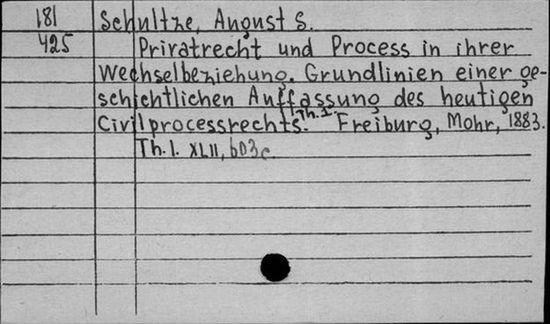 181 Schultze, August S.
425 Privatrecht und Process in ihrer
Wechselbeziehung. Grundlinien einer ge-
schichtlichen Auffassung des heutigen
Civilprocessrechts. Th.1. Freiburg, Mohr, 1883.
Th.1. XLII, 603 c.